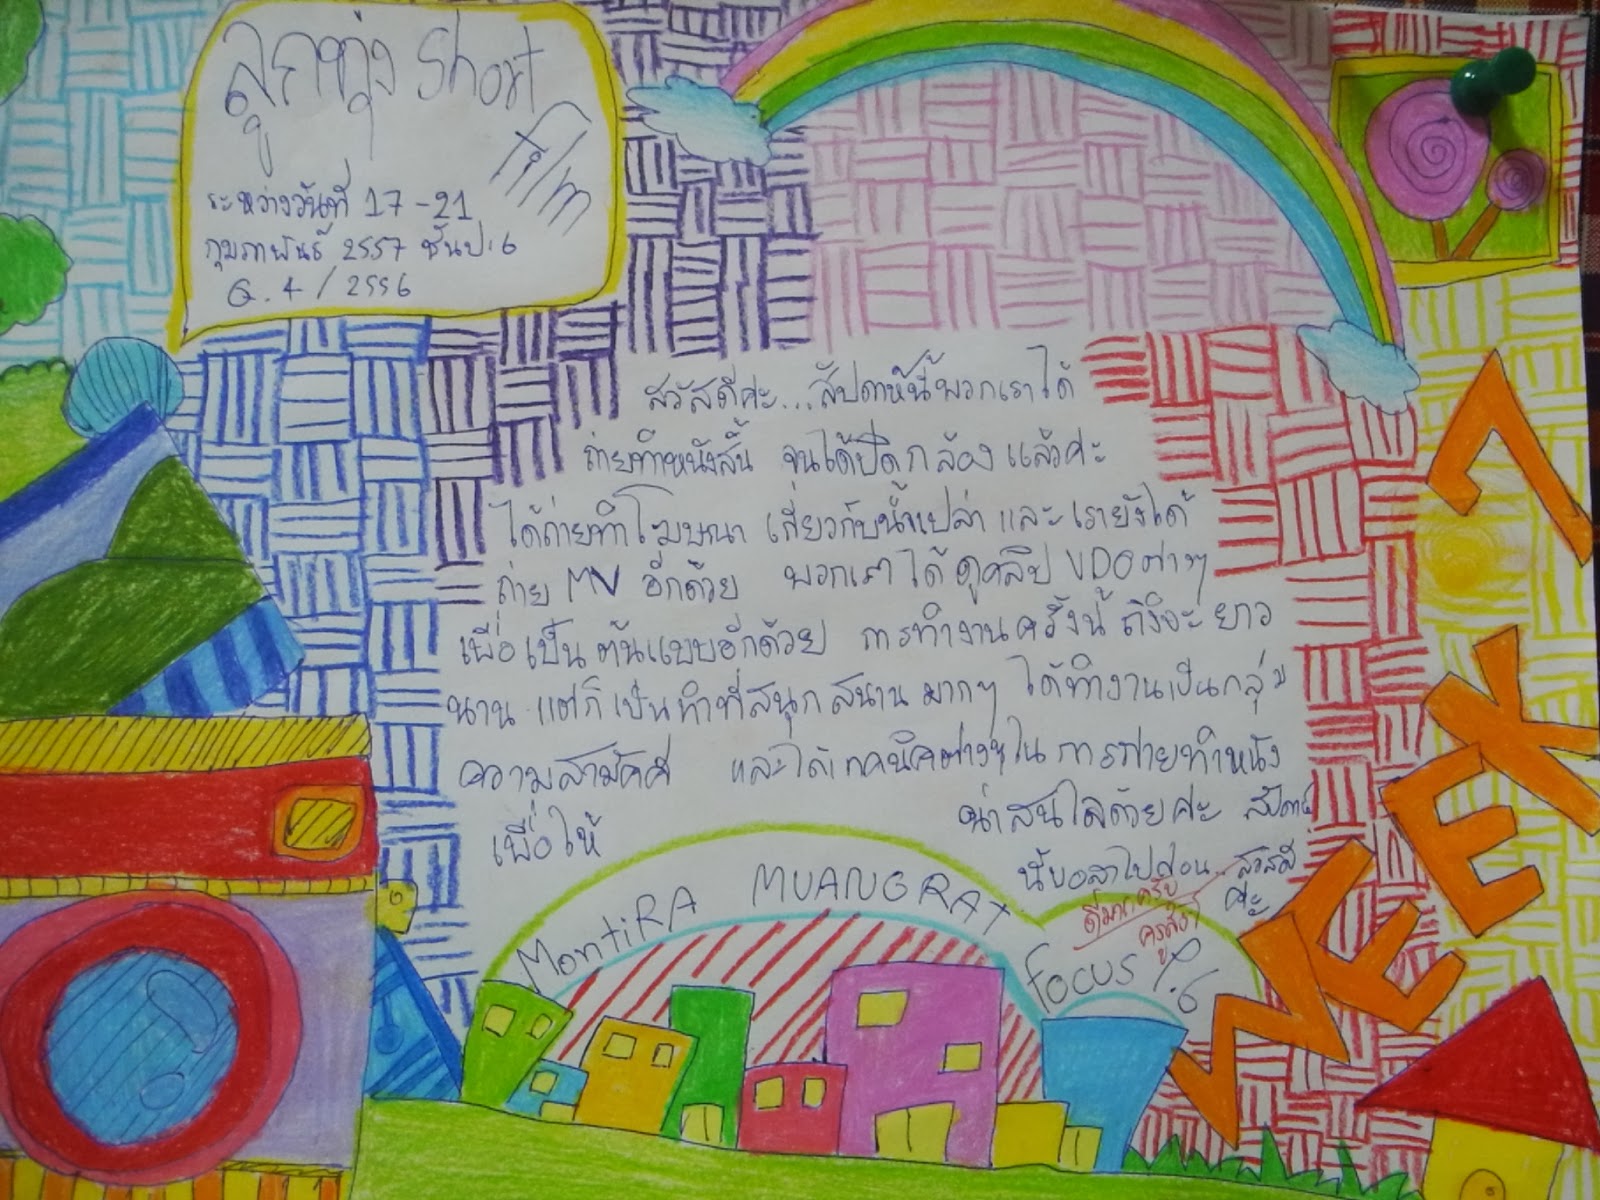 ลูกทุ่ง Short
film
ระหว่างวันที่ 17-21
กุมภาพันธ์ 2557 ชั้นป.6
Q.4/2556
สวัสดีค่ะ...สัปดาห์นี้พวกเราได้
ถ่ายทำหนังสั้น จนได้ปิดกล้องแล้วค่ะ
ได้ถ่ายทำโฆษณา เกี่ยวกับน้ำเปล่า และเรายังได้
ถ่าย MV อีกด้วย พวกเราได้ดูคลิป VDO ต่างๆ
เพื่อเป็นต้นแบบอีกด้วย การทำงานครั้งนี้ถึงจะยาว
นาน แต่ก็เป็นทำที่สนุกสนานมากๆ ได้ทำงานเป็นกลุ่ม
ความสามัคคี และได้เทคนิคต่างๆในการถ่ายทำหนัง
เพื่อให้ น่าสนใจด้วยค่ะ สัปดาห์
นี้ขอลาไปก่อน..สวัสดี
ค่ะ
ดีมากครับ
MontiRA MUANGRAT
Focus P.6
WEEK 7